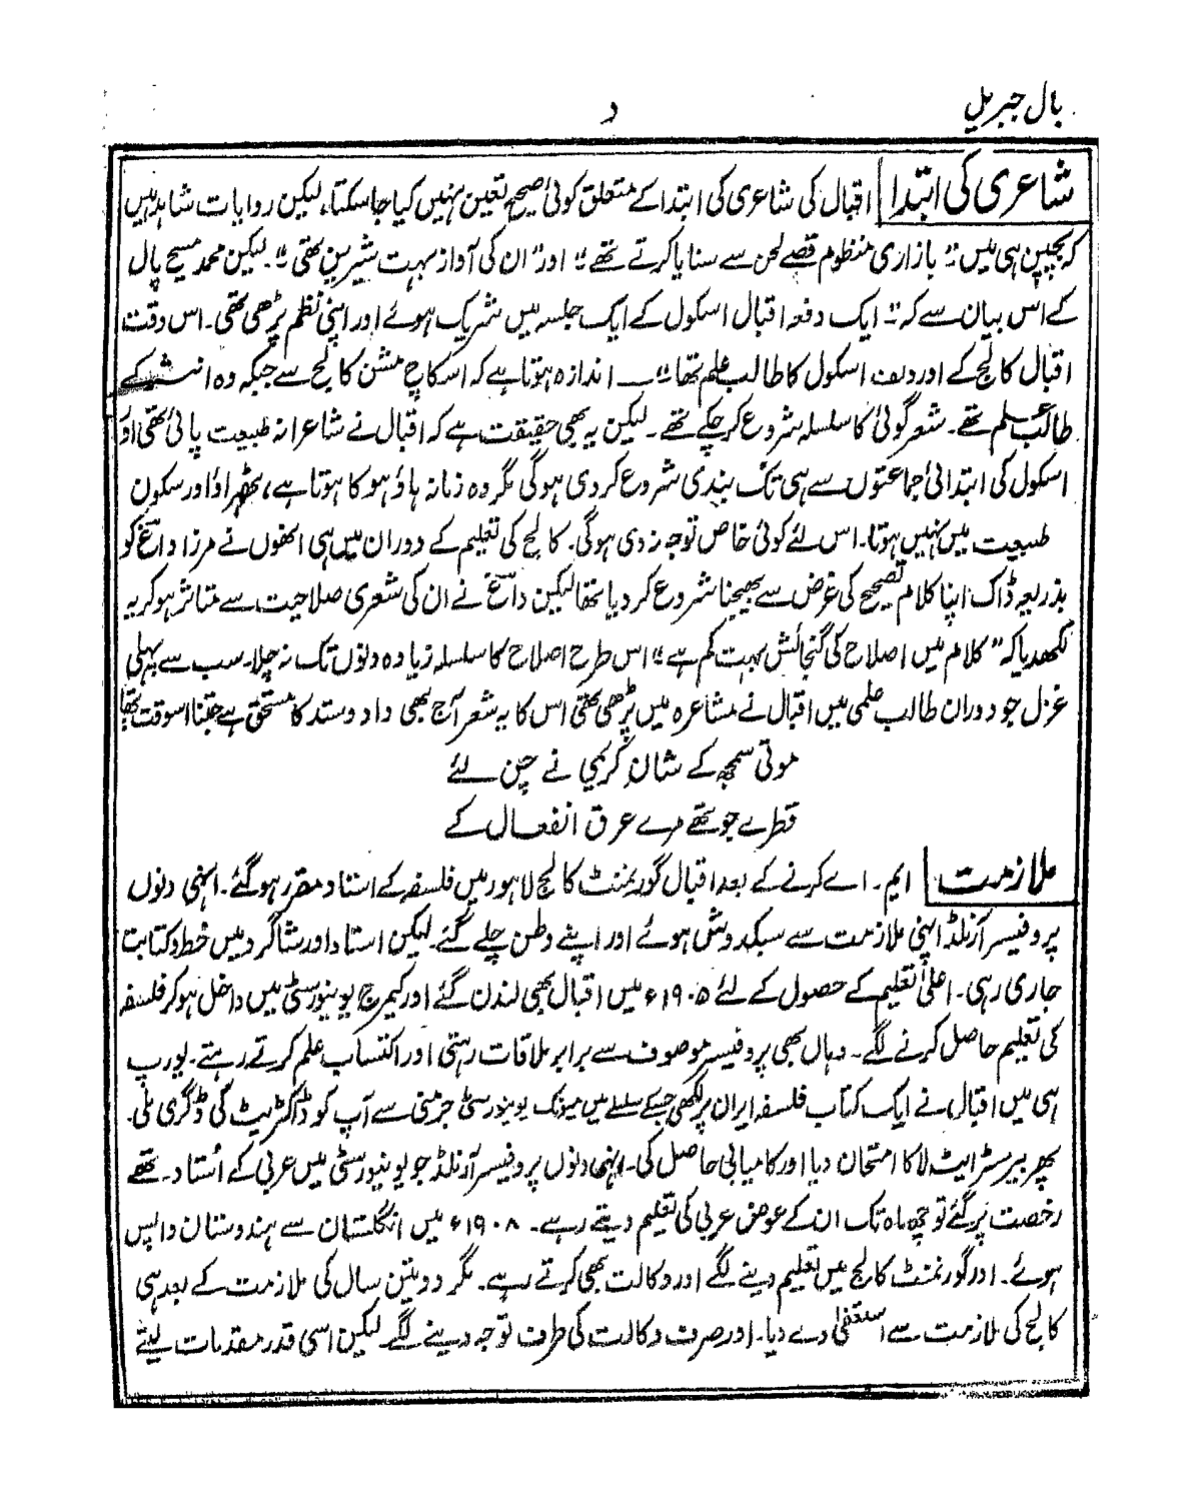 بال جبریل
د
شاعری کی ابتدا اقبال کی شاعری کی ابتدا کے متعلق کوئی صحیح تعین نہیں کیا جا سکتا، لیکن روایات شاہد ہیں
کہ بچپن ہی میں "بازاری منظوم قصے لحن سے سنایا کرتے تھے" اور "ان کی آواز بہت شیریں تھی"۔ لیکن محمد مسیح پال
کے اس بیان سے کہ "ایک دفعہ اقبال اسکول کے ایک جلسہ میں شریک ہوئے اور اپنی نظم پڑھی تھی۔ اس وقت
اقبال کالج کے اور میں اسکول کا طالب علم تھا" ـــ اندازہ ہوتا ہے کہ اسکاچ مشن کالج سے جبکہ وہ انٹر کے
طالب علم تھے۔ شعر گوئی کا سلسلہ شروع کر چکے تھے۔ لیکن یہ بھی حقیقت ہے کہ اقبال نے شاعرانہ طبیعت پائی تھی اور
اسکول کی ابتدائی جماعتوں سے ہی تک بندی شروع کر دی ہوگی مگر وہ زمانہ ہاؤ ہو کا ہوتا ہے، ٹھہراؤ اور سکون
طبیعت میں نہیں ہوتا۔ اس لئے کوئی خاص توجہ نہ دی ہوگی۔ کالج کی تعلیم کے دوران میں ہی انھوں نے مرزا داغؔ کو
بذریعہ ڈاک اپنا کلام تصحیح کی غرض سے بھیجنا شروع کر دیا تھا لیکن داغؔ نے ان کی شعری صلاحیت سے متاثر ہو کر یہ
لکھ دیا کہ "کلام میں اصلاح کی گنجائش بہت کم ہے" اس طرح اصلاح کا سلسلہ زیادہ دنوں تک نہ چلا۔ سب سے پہلی
غزل جو دوران طالب علمی میں اقبال نے مشاعرہ میں پڑھی تھی اس کا یہ شعر آج بھی داد و ستد کا مستحق ہے جتنا اسوقت تھا
موتی سمجھ کے شانِ کریمی نے چن لئے
قطرے جو تھے مرے عرق انفعال کے
ملازمت ایم۔ اے کرنے کے بعد اقبال گورنمنٹ کالج لاہور میں فلسفہ کے استاد مقرر ہو گئے۔ انہی دنوں
پروفیسر آرنلڈ اپنی ملازمت سے سبکدوش ہوئے اور اپنے وطن چلے گئے۔ لیکن استاد اور شاگرد میں خط و کتابت
جاری رہی۔ اعلیٰ تعلیم کے حصول کے لئے ۱۹۰۵ء میں اقبال بھی لندن گئے اور کیمرج یونیورسٹی میں داخل ہو کر فلسفہ
کی تعلیم حاصل کرنے لگے۔ وہاں بھی پروفیسر موصوف سے برابر ملاقات رہتی اور اکتساب علم کرتے رہتے۔ یورپ
ہی میں اقبال نے ایک کتاب فلسفہ ایران پر لکھی جسکے سلسلے میں میونک یونیورسٹی جرمنی سے آپ کو ڈاکٹریٹ کی ڈگری ملی۔
پھر بیرسٹر ایٹ لا کا امتحان دیا اور کامیابی حاصل کی۔ انہی دنوں پروفیسر آرنلڈ جو یونیورسٹی میں عربی کے استاد۔ تھے
رخصت پر گئے تو چھ ماہ تک ان کے عوض عربی کی تعلیم دیتے رہے۔ ۱۹۰۸ء میں انگلستان سے ہندوستان واپس
ہوئے۔ اور گورنمنٹ کالج میں تعلیم دینے لگے اور وکالت بھی کرتے رہے۔ مگر دو تین سال کی ملازمت کے بعد ہی
کالج کی ملازمت سے استعفیٰ دے دیا۔ اور صرف وکالت کی طرف توجہ دینے لگے لیکن اسی قدر مقدمات لیتے